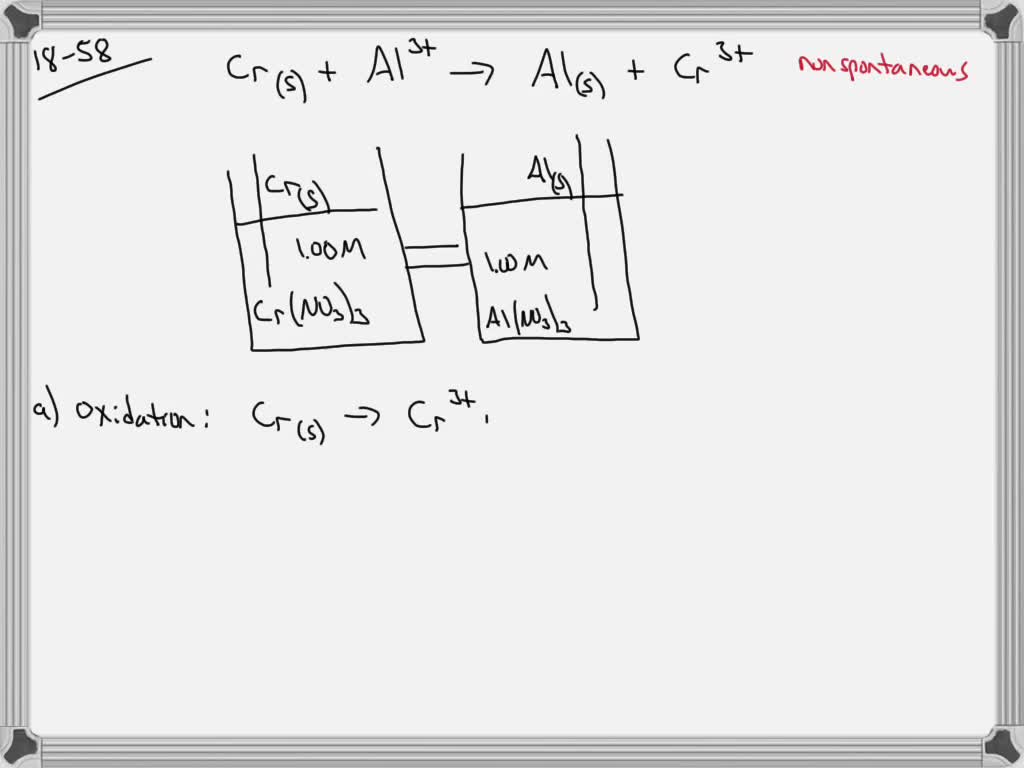 18-58
Cr(s) + Al³⁺ → Al(s) + Cr³⁺ nonspontaneous
Cr(s)
Al(s)
1.00M
1.00M
Cr(NO₃)₃
Al(NO₃)₃
a) oxidation: Cr(s) → Cr³⁺